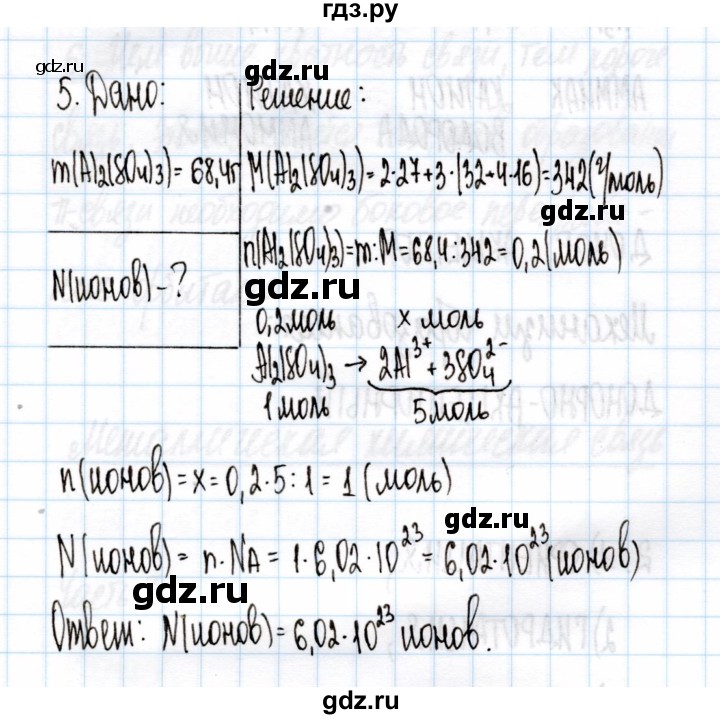 гдз.ру
gdz.ru
gdz.ru
5. Дано:
Решение:
m(Al2(SO4)3) = 68,4г
M(Al2(SO4)3) = 2·27+3·(32+4·16)=342(г/моль)
gdz.ru
n(Al2(SO4)3)=m:M=68,4:342=0,2(моль)
N(ионов) - ?
gdz.ru
0,2моль x моль
Al2(SO4)3 → 2Al³⁺ + 3SO4²⁻
1моль 5моль
n(ионов) = x = 0,2·5:1 = 1 (моль)
gdz.ru
N(ионов) = n·NA = 1·6,02·10²³ = 6,02·10²³ (ионов)
gdz.ru
Ответ: N(ионов) = 6,02·10²³ ионов.
gdz.ru